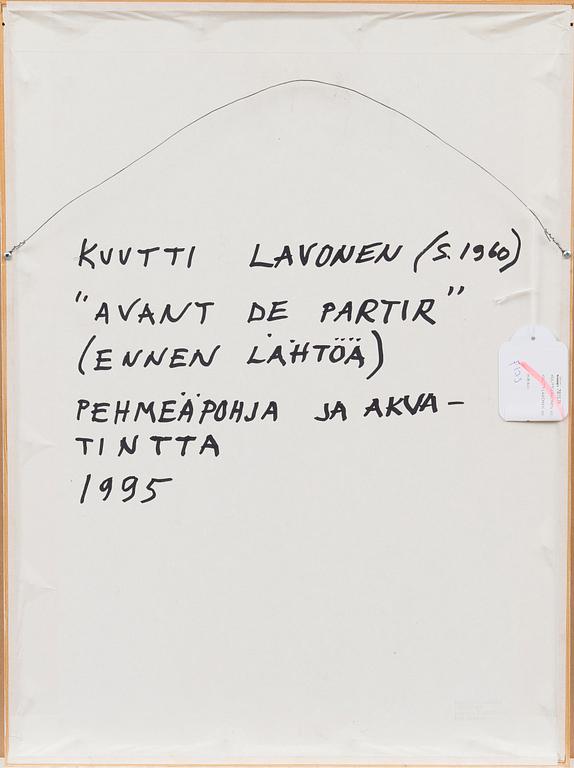 KUUTTI LAVONEN (S. 1960)
"AVANT DE PARTIR"
(ENNEN LÄHTÖÄ)
PEHMEÄPOHJA JA AKVA-
TINTTA
1995